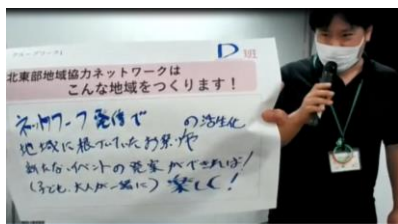 グループワーク1
D 班
北東部地域協力ネットワークは
こんな地域をつくります！
ネットワーク発信で の活性化
地域に根づいていたお祭りや
新たなイベントの発案ができれば！
(子ども、大人が一緒に) 楽しく！